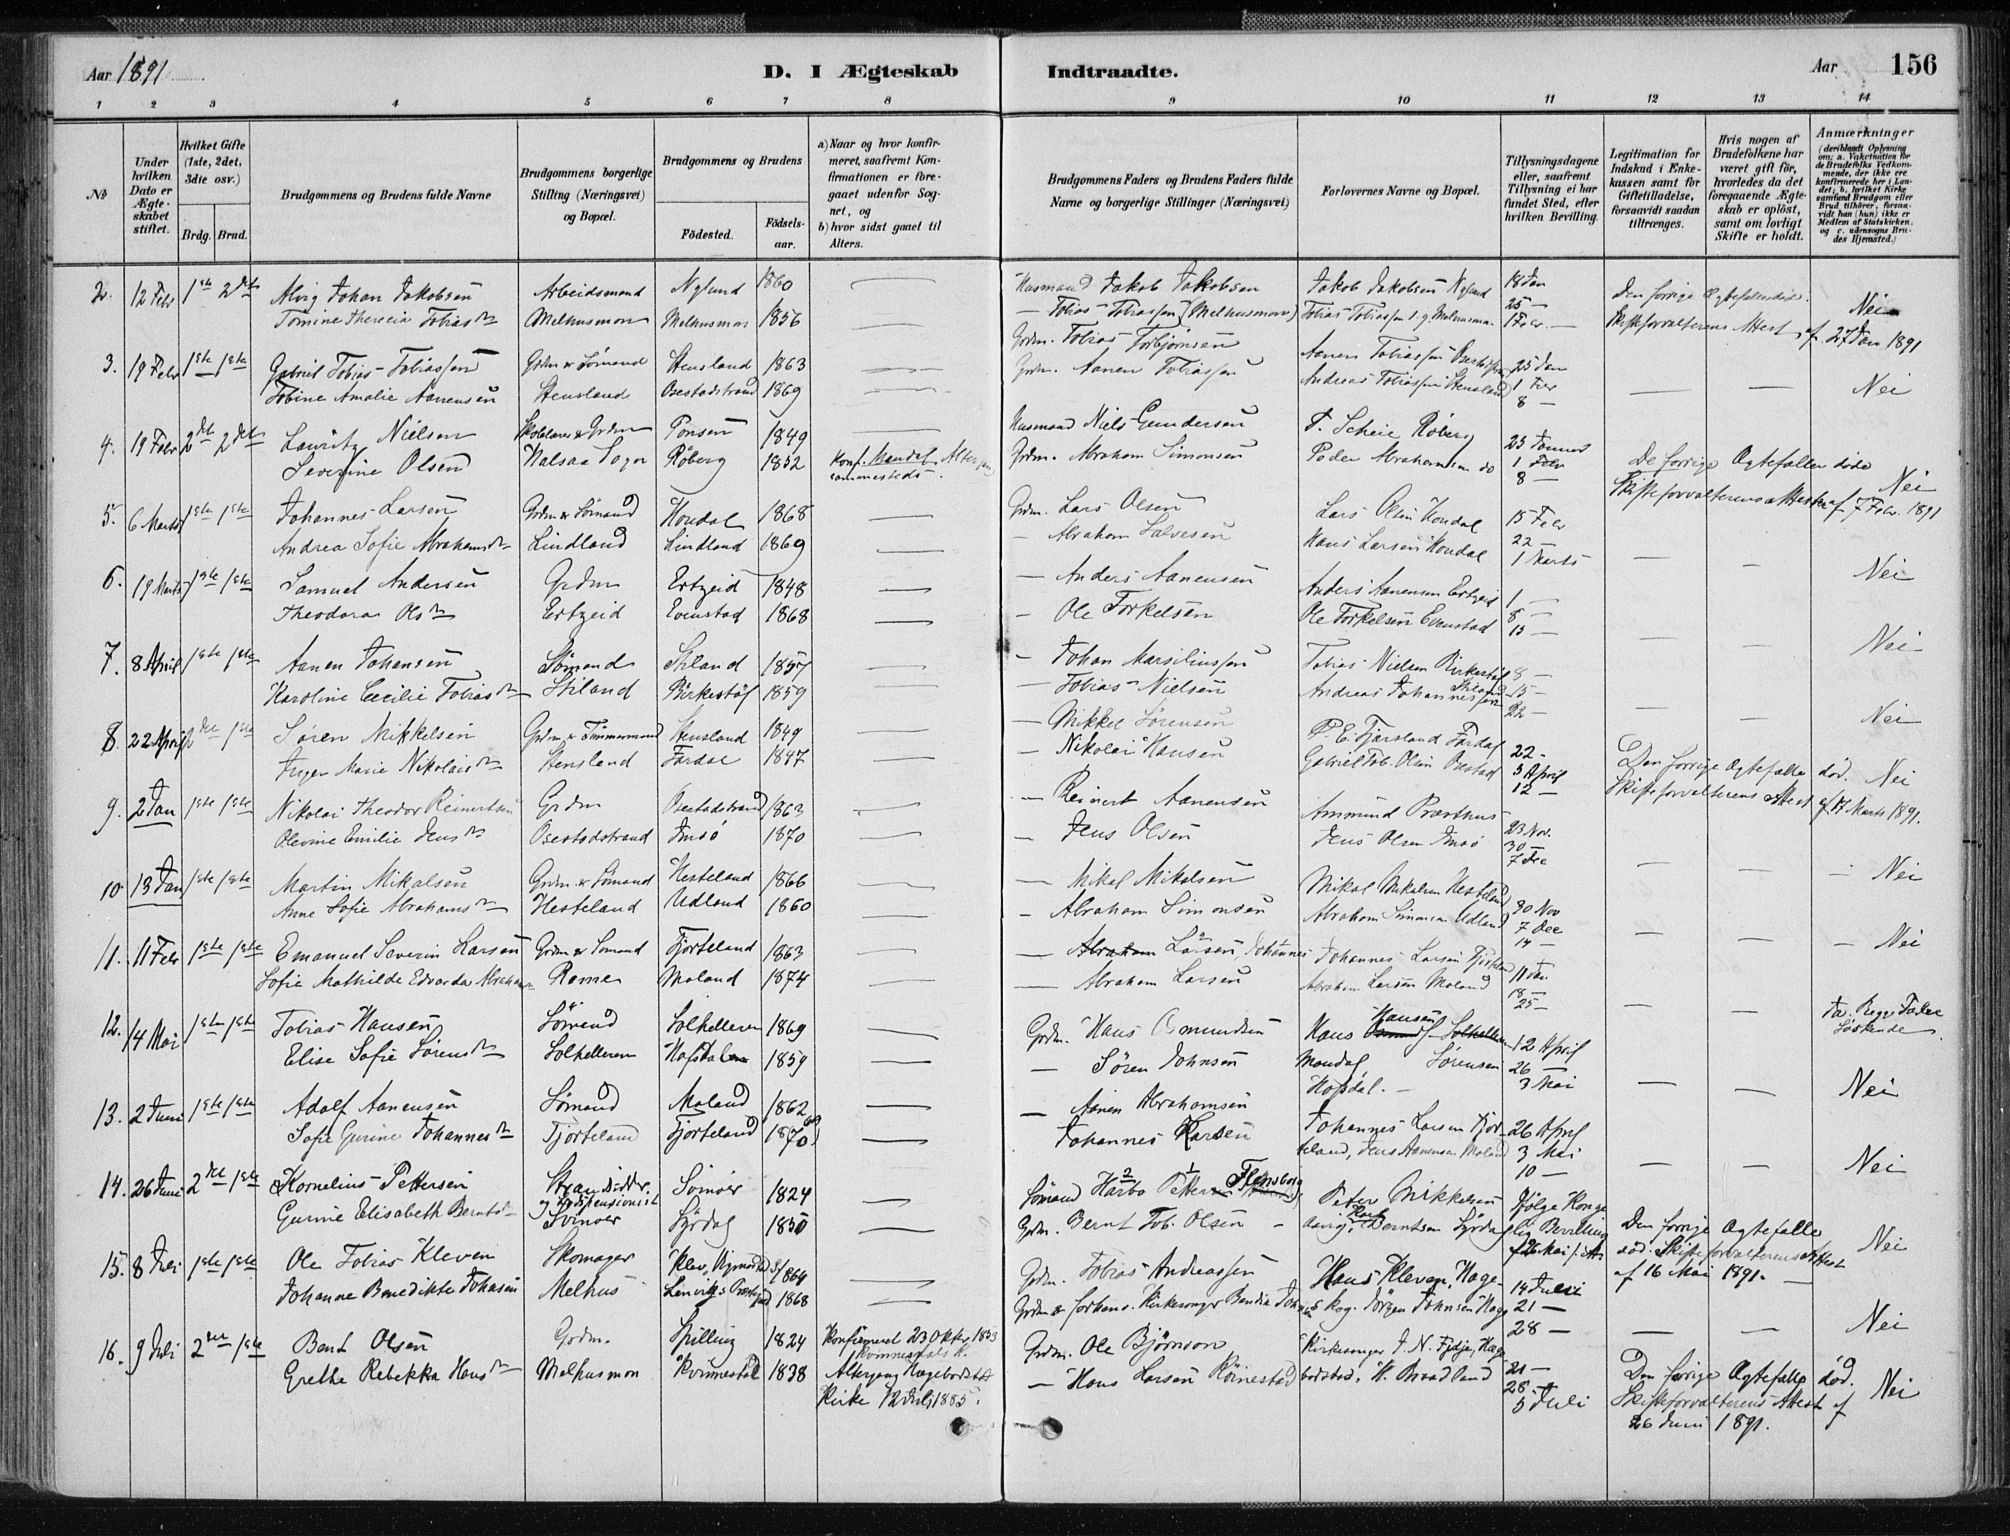 Aar 1891
D. I Ægteskab
Indtraadte.
Aar 156
1 2 3 4 5 6 7 8 9 10 11 12 13 14
No
Under hvilken Dato er Ægteskabet stiftet.
Hvilket Gifte (1ste, 2det, 3die osv.)
Brdg. Brud.
Brudgommens og Brudens fulde Navne
Brudgommens borgerlige Stilling (Næringsvei) og Bopæl.
Brudgommens og Brudens
Fødested.
Fødselsaar.
a) Naar og hvor konfirmeret, saafremt Konfirmationen er foregaaet udenfor Sognet, og
b) hvor sidst gaaet til Alters.
Brudgommens Faders og Brudens Faders fulde Navne og borgerlige Stillinger (Næringsvei)
Forlovernes Navne og Bopæl.
Tillysningsdagene eller, saafremt Tillysning ei har fundet Sted, efter hvilken Bevilling.
Legitimation for Indskud i Enkekassen samt for Giftetilladelse, forsaavidt saadan tiltrænges.
Hvis nogen af Brudefolkene har været gift før, hvorledes da det foregaaende Ægteskab er opløst, samt om lovligt Skifte er holdt.
Anmærkninger (deriblandt Oplysning om: a. Vakcination for de Brudefolks Vedkommende, der ikke ere konfirmerede her i Landet; b. hvilket Kirkesamfund Brudgom eller Brud tilhører, forsaavidt han (hun) ikke er Medlem af Statskirken, og c. udensogns Brudes Hjemsted.)
2. 12 Febr 1ste 2det Alvig Johan Jakobsen Arbeidsmand Nylund 1860 Husmand Jakob Jakobsen Jakob Jakobsen Nylund 18 Jan Den forrige Ægtefælle død. Nei
Tomine Therecia Tobiasdtr Melhusmon Melhusmon 1856 — Tobias Tobiassen (Melhusmon) Tobias Tobiassen 25 — 1 Febr. Skifteforvalterens Attest af 27 Jan 1891
3. 19 Febr 1ste 1ste Gabriel Tobias Tobiassen Grdm & Sømand Stensland 1863 Grdm. Tobias Torbjørnsen Aanen Tobiassen 25 Jan
Tobine Amalie Aanensen Stensland Osestadstrand 1869 Grdm. Aanen Tobiassen Andreas Tobiassen Stensland 1 Febr 8 — — — Nei
4. 19 Febr 2det 2det Lauritz Nielsen Skolelærer & Grdm Tonsen 1849 Husmand Niels Gundersen T. Scheie Røberg 25 Januar
Severine Olsen Halsaa Sogn Røberg 1852 Konf. Mandal. Altergang sammesteds. Grdm. Abraham Simonsen Peder Abrahamsen do 1 Febr 8 — De forrige Ægtefæller døde Nei
Skifteforvalterens Attester af 7 Febr. 1891
5. 6 Marts 1ste 1ste Johannes Larsen Grdm & Sømand Houdal 1868 Grdm. Lars Olsen Lars Olsen Houdal 15 Febr
Andrea Sofie Abrahamsdtr Lindland Lindland 1869 — Abraham Salvesen Hans Larsen Houdal 22 — 1 Marts — — Nei
6. 19 Marts 1ste 1ste Samuel Andersen Grdm Ertzeid 1848 — Anders Aanensen Anders Aanensen Ertzeid 1 —
Theodora Olsdtr Ertzeid Evenstad 1868 — Ole Torkelsen Ole Torkelsen Evenstad 8 — 15 — — — Nei
7. 8 April 1ste 1ste Aanen Johansen Sømand Stiland 1857 — Johan Marsiliussen Tobias Nielsen Birkestøl 8 —
Karoline Cecilie Tobiasdtr Stiland Birkestøl 1859 — Tobias Nielsen Andreas Johannessen Stiland 15 — 22 — — — Nei
8. 22 April 2det 1ste Søren Mikkelsen Grdm & Tømmermand Stensland 1849 — Mikkel Sørensen P. E. Fjærsland Fardal 22 —
Inger Marie Nikolaisdtr Stensland Fardal 1847 — Nikolai Hansen Gabriel Tob. Olsen 5 April 12 — Den forrige Ægtefælle død. Nei
Skifteforvalterens Attest af 17 Marts 1891.
9. 2 Jan 1ste 1ste Nikolai Theodor Reinertsen Grdm Osestadstrand 1863 — Reinert Aanensen Ammund Præsthus 23 Nov.
Olevine Emilie Jensdtr Osestadstrand Imsø 1870 — Jens Olsen Jens Olsen Imsø 30 — 7 Dec — — Nei
10. 13 Jan 1ste 1ste Martin Mikalsen Grdm. & Sømand Hesteland 1866 — Mikal Mikalsen Mikal Mikalsen Hesteland 30 Nov
Anne Sofie Abrahamsdtr Hesteland Udland 1860 — Abraham Simonsen Abraham Simonsen Udland 7 Dec 14 — — — Nei
11. 11 Febr 1ste 1ste Emanuel Severin Larsen Grdm & Sømand Fjorteland 1863 — Abraham Larsen, Johannes Johannes Larsen Fjorteland 11 Jan.
Sofie Mathilde Edvarda Abrahamsdtr Rome Moland 1874 — Abraham Larsen Abraham Larsen Moland 18 — 25 —
12. 14 Mai 1ste 1ste Tobias Hansen Sømand Solhelleren 1869 Grdm. Hans Osmundsen Hans Hansen Solhelleren 12 April
Elise Sofie Sørensdtr Solhelleren Hofsdal 1859 — Søren Johnsen Mandal Sørensen Hofsdal. 26 — 3 Mai — — Nei
13. 2 Juni 1ste 1ste Adolf Aanensen Sømand Moland 1862 — Aanen Abrahamsen Johannes Larsen Fjor- 26 April
Sofie Gurine Johannesdtr Fjorteland Fjorteland 1870 Johannes Larsen teland, Jens Aanensen Moland 3 Mai 10 — — — Nei
14. 26 Juni 2det 1ste Kornelius Pettersen Strandsidder, Svinør 1824 Sømand Harbo Petter Flensborg Peter Mikkelsen Ifølge Konge-
Gurine Elisabeth Berntsdtr Svinøer Syrdal 1850 Grdm. Bernt Tob. Olsen Berntsen Syrdal lig Bevilling af 26 Mai Den forrige Ægtefælle død. Skifteforvalterens Attest af 16 Mai 1891. Nei
15. 8 Juli 1ste 1ste Ole Tobias Kleven Skomager Klev, 1864 Grdm. Tobias Andreassen Hans Kleven, Hæge- 14 Juni
Johanne Benedikte Johnsen Melhus 1868 Grdm & forhenv. Kirkesanger Jørgen Johnsen 21 — 28 — — — Nei
16. 9 Juli 2det 1ste Bent Olsen Grdm. Spilling 1824 Konfirmeret 23 Oktbr. 1853 Grdm. Ole Bjørnson Kirkesanger T. N. Fidje, Hæge- 21 —
Grethe Rebekka Hansdtr Melhusmon Kvinnesdal 1838 Altergang Hægebostad Kirke 12 Juli 1885. — Hans Larsen Røinestad bostad, K. Aavadland 28 — 5 Juli Den forrige Ægtefælle død. Nei
Skifteforvalterens Attest af 26 Juni 1891.